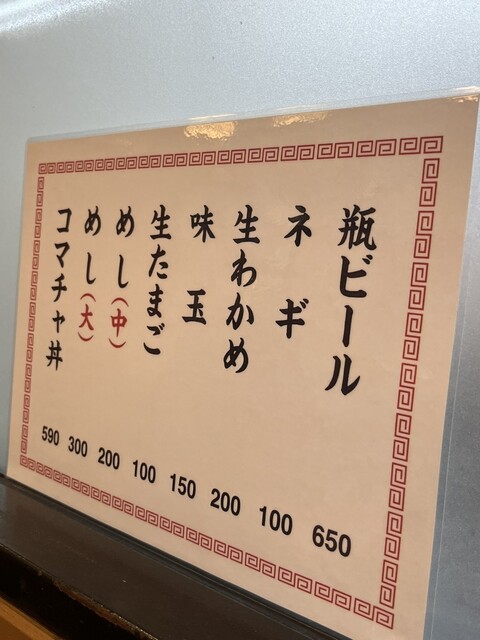 瓶ビール 650
ネギ 100
生わかめ 200
味玉 150
生たまご 100
めし(中) 200
めし(大) 300
コマチャ丼 590